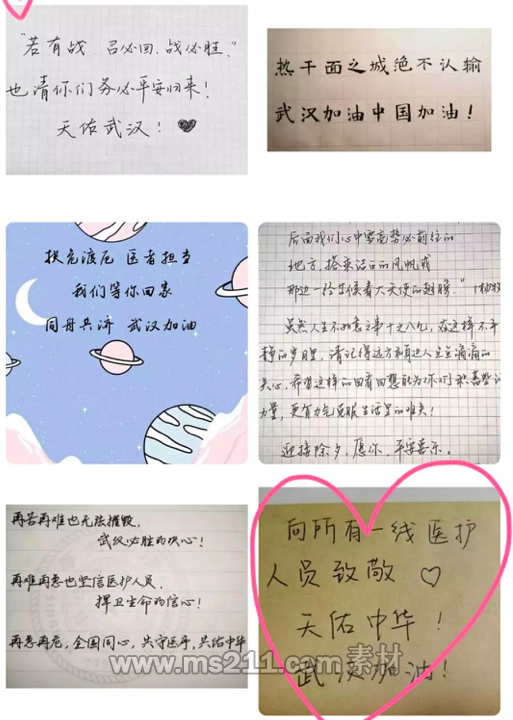 "若有战 召必回、战必胜,"
也请你们务必平安归来!
天佑武汉!
热干面之城绝不认输
武汉加油中国加油!
扶危渡厄 医者担当
我们等你回家
同舟共济 武汉加油
后面我们心中要高势必前往的
地方,搭乘洁白的风帆或
那边一给守候着大天使的翅膀."
虽然人生不如意之事十之八九,在这样不平
静的岁月里,请记得远方和身边人点点滴滴的
关心,希望这样的回看回想能为你们积蓄
力量,更有力气克服生活里的难关!
迎接除夕,愿你,平安喜乐。
再苦再难也无法摧毁,
武汉必胜的决心!
再难再急也坚信医护人员,
捍卫生命的信心!
再急再危,全国同心,共守医手,共佑中华
向所有一线医护
人员致敬
天佑中华!
武汉加油!
www.ms211.com 素材